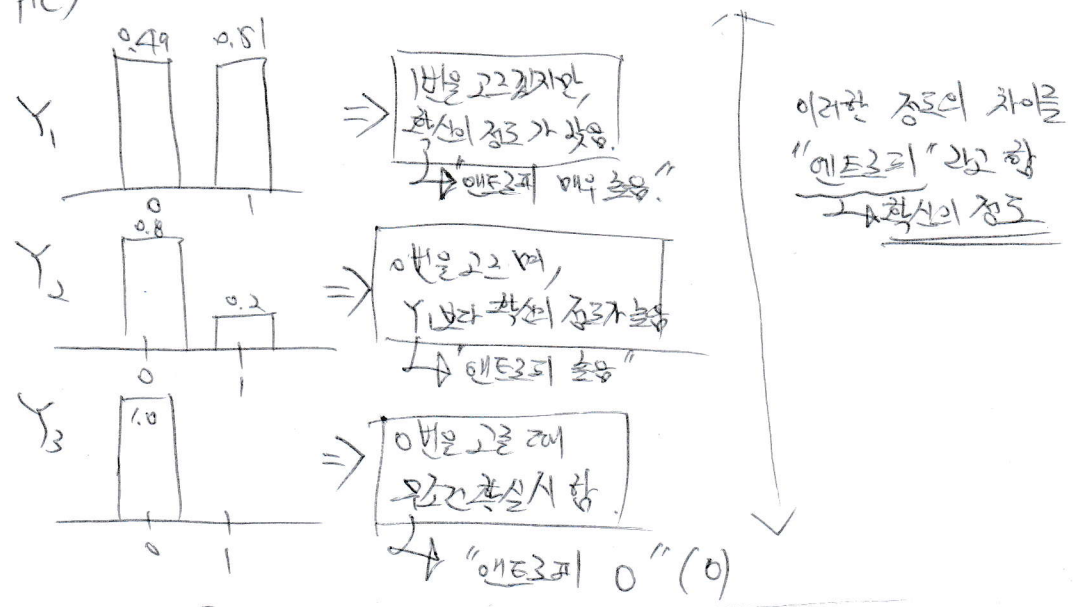 0.49 0.51
Y₁
0 1
⇒
1번을 고르겠지만,
확신의 정도가 낮음.
↳ "엔트로피 매우 높음."
0.8
0.2
Y₂
0 1
⇒
0번을 고르며,
Y₁보다 확신의 정도가 높음
↳ "엔트로피 높음"
1.0
Y₃
0 1
⇒
0번을 고를 때
무조건 확실시 함.
↳ "엔트로피 0" (0)
이러한 정도의 차이를
"엔트로피"라고 함
↳ 확신의 정도